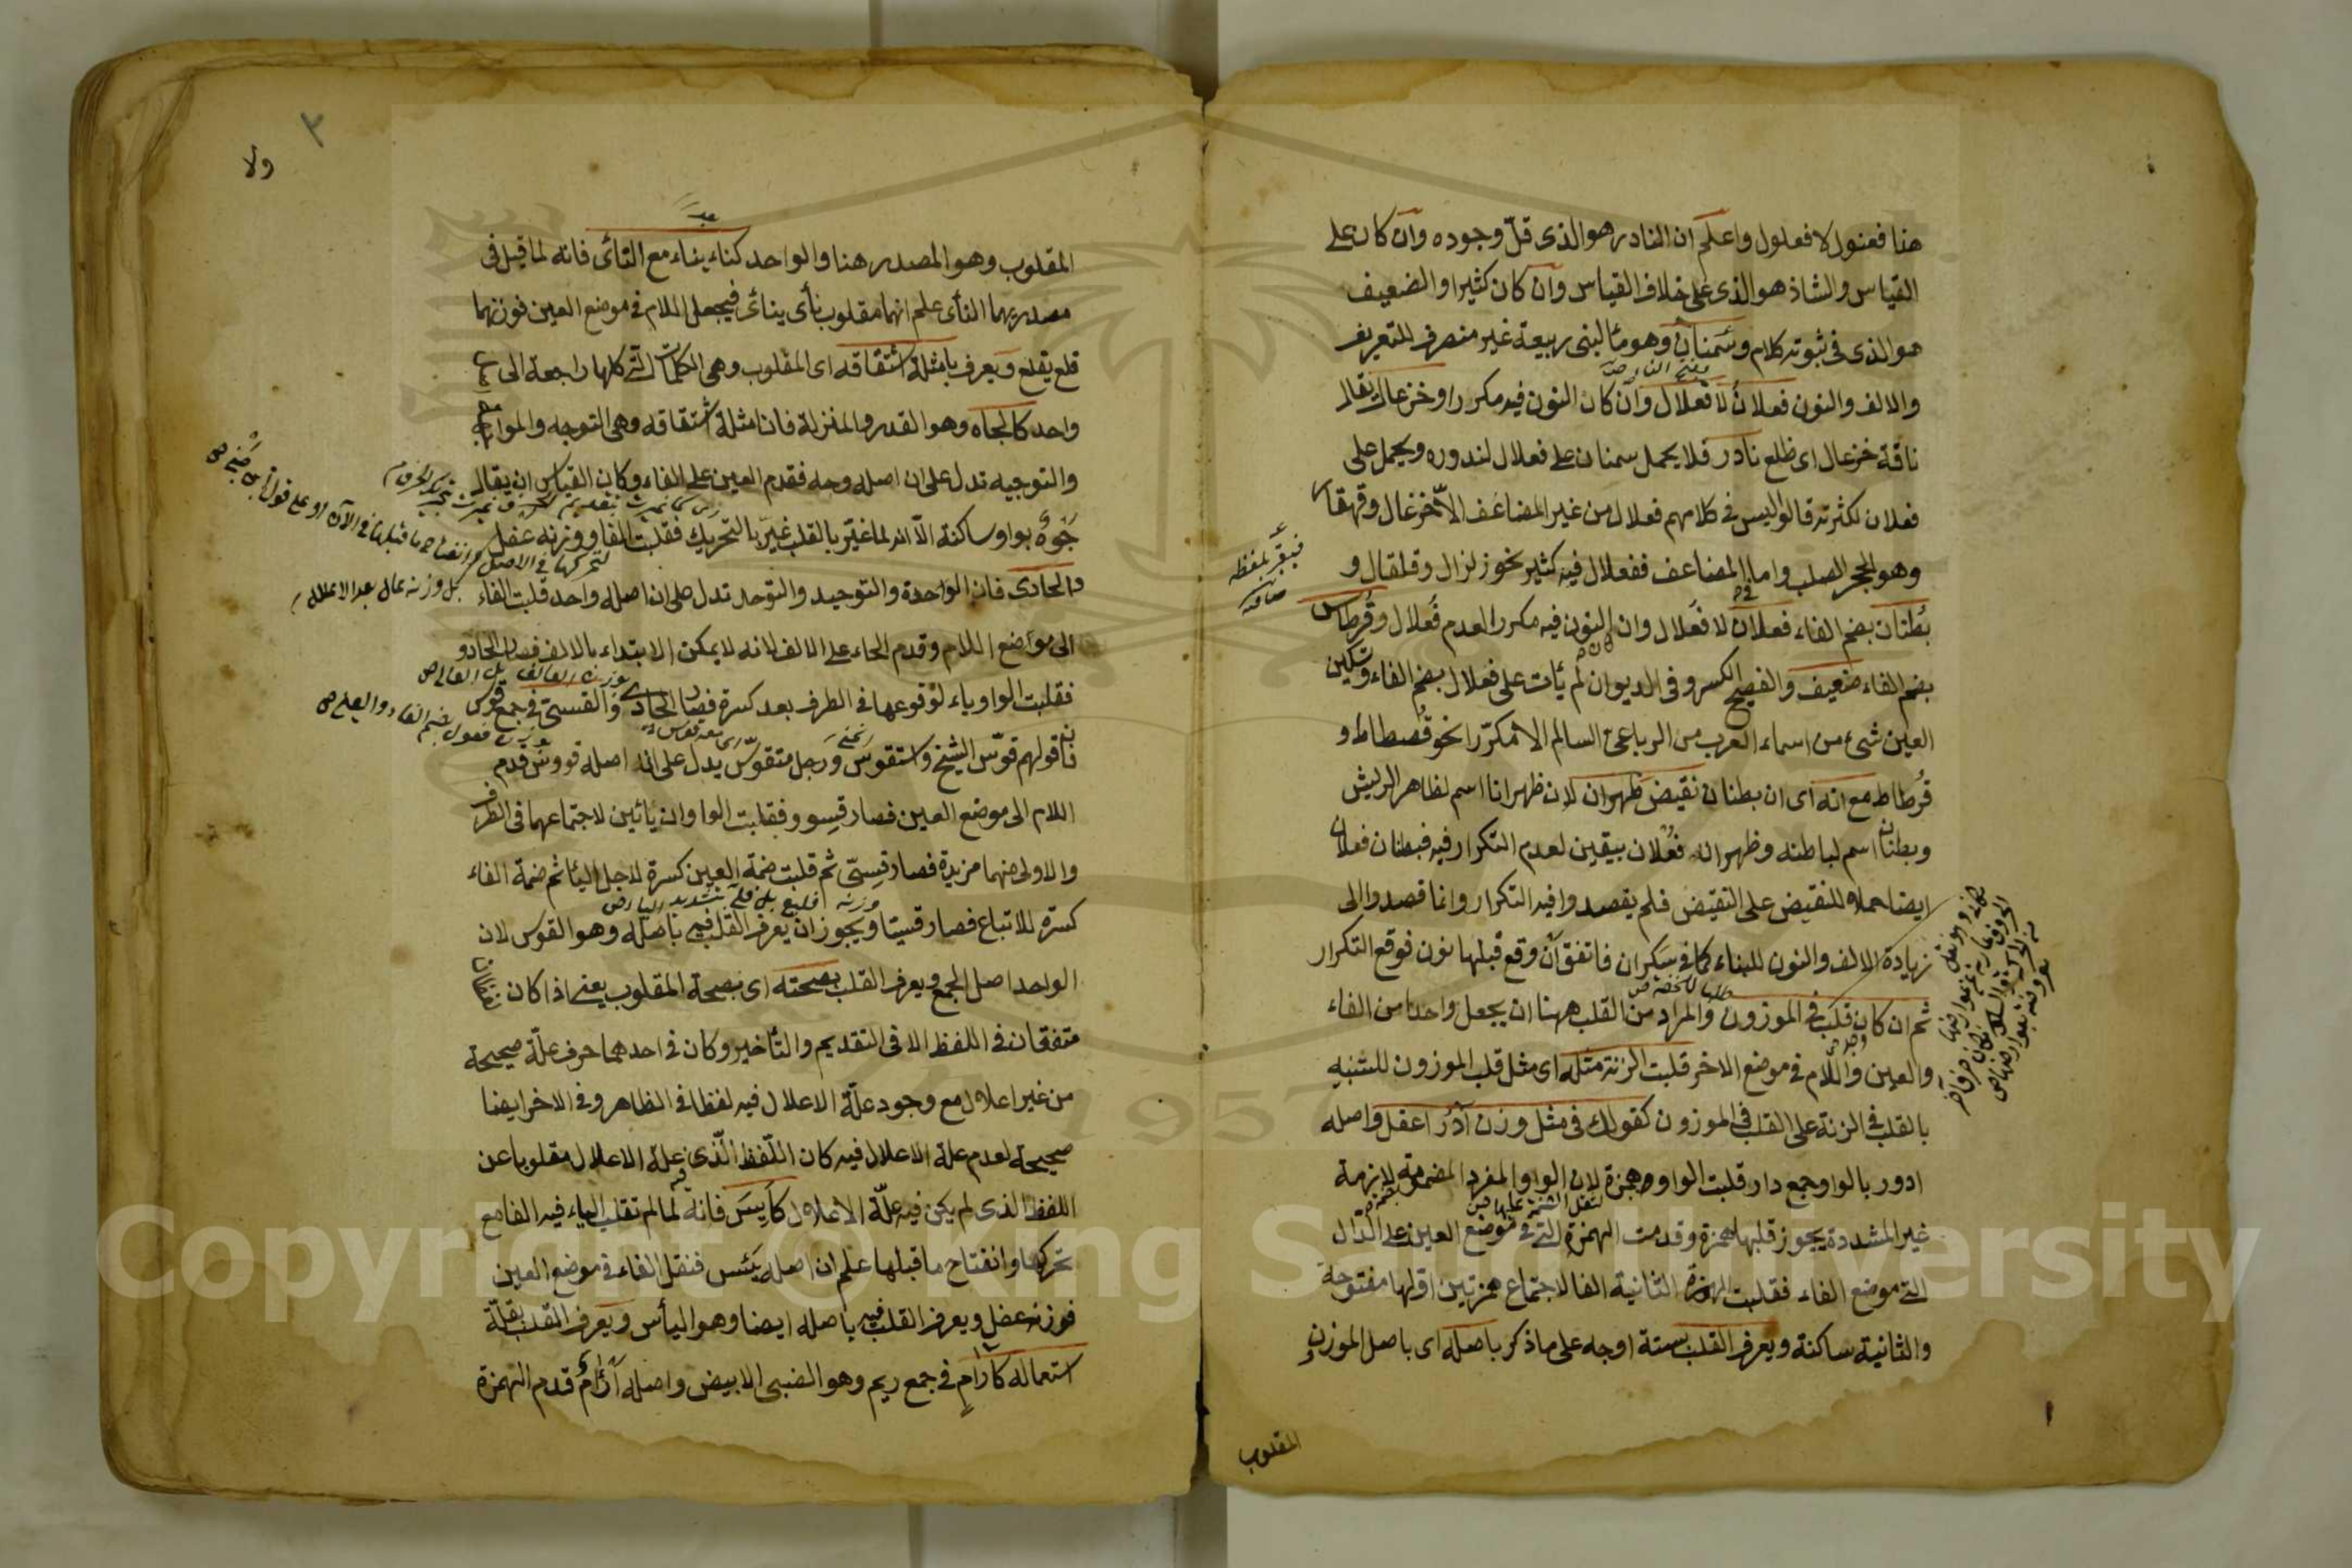 هنا فعنول لا فعلول واعلم ان النادر هو الذى قلّ وجوده وان كان على
القياس والشاذ هو الذى على خلاف القياس وان كان كثيرا والضعيف
هو الذى فى ثبوته كلام وسمنان وهو ماء لبنى ربيعة غير منصرف للتعريف
والالف والنون فعلان لا فعلال وان كان النون فيه مكررا وخزعال يقال
ناقة خزعال اى ظلع نادر فلا يحمل سمنان على فعلال لندوره ويحمل على
فعلان لكثرته قالوا ليس فى كلامهم فعلال من غير المضاعف الا خزعال وقهقار
وهو الحجر الصلب واما المضاعف ففعلال فيه كثير نحو زلزال وقلقال و
بُطنان بضم الفاء فعلان لا فُعلال وان النون فيه مكرر العدم فُعلال وقُرطاس
بضم الفاء ضعيف والفصيح الكسر وفى الديوان لم يأت على فعلال بضم الفاء وتسكين
العين شىء من اسماء العرب من الرباعى السالم الا مكررا نحو قُسطاط و
قُرطاط مع انه اى ان بطنان نقيض ظهران لان ظهرانا اسم لظاهر الريش
وبطنان اسم لباطنه وظهران فُعلان بيقين لعدم التكرار فيه فبطنان فعلان
ايضا حملا للنقيض على النقيض فلم يقصدوا فيه التكرار وانما قصدوا الى
زيادة الالف والنون للبناء كما فى سكران فاتفق ان وقع قبلها نون فوقع التكرار
ثم ان كان قلب فى الموزون والمراد من القلب ههنا ان يجعل واحدا من الفاء
والعين واللام فى موضع الاخر قلبت الزنة مثله اى مثل قلب الموزون للتنبيه
بالقلب فى الزنة على القلب فى الموزون كقولك فى مثل وزن آدُر اعفل واصله
ادور بالواو جمع دار قلبت الواو همزة لان الواو المفرد المضمومة لازمة
غير المشددة يجوز قلبها همزة وقدمت الهمزة التى فى موضع العين على الدّال
التى موضع الفاء فقلبت الهمزة الثانية الفا لاجتماع همزتين اولها مفتوحة
والثانية ساكنة ويعرف القلب بستة اوجه على ما ذكر باصله اى باصل الموزن
المقلوب
ولا
٢
المقلوب وهو المصدر هنا والواحد كناء يناء مع النأى فانه لما قيل فى
مصدريهما النأى علم انهما مقلوب نأى ينأى فيجعل اللام فى موضع العين فوزنهما
فلع يفلع ويعرف بامثلة اشتقاقه اى المقلوب وهى الكلمات التى كلها راجعة الى
واحد كالجاه وهو القدر والمنزلة فان امثلة اشتقاقه وهى التوجه والمواجهة
والتوجيه تدل على ان اصله وجه فقدم العين على الفاء وكان القياس ان يقال
جَوْهٌ بواو ساكنة الّا انه لما غيّر بالقلب غيّر بالتحريك فقلبت الفا ووزنه عفل
والحادى فان الواحدة والتوحيد والتوحد تدل على ان اصله واحد قلبت الفاء
الى مواضع اللام وقدم الحاء على الالف لانه لا يمكن الابتداء بالالف فصار الحادو
فقلبت الواو ياء لوقوعها فى الطرف بعد كسرة فصار الحادى والقسىّ فى جمع قوس
فان قولهم قوّس الشيخ واستقوس ورجل متقوّس يدل على انه اصله قووس قدم
اللام الى موضع العين فصار قسوو فقلبت الواوان يائين لاجتماعهما فى الطرف
والاولى منهما مزيدة فصار قسىّ ثم قلبت ضمة العين كسرة لاجل الياء ثم ضمة الفاء
كسرة للاتباع فصار قسيّا ويجوز ان يعرف القلب فيه باصله وهو القوس لان
الواحد اصل الجمع ويعرف القلب بصحته اى بصحة المقلوب يعنى اذا كان
متفقان فى اللفظ الا فى التقديم والتأخير وكان فى احدهما حرف علّة صحيحة
من غير اعلال مع وجود علة الاعلال فيه لفظا فى الظاهر وفى الاخر ايضا
صحيحة لعدم علة الاعلال فيه كان اللّفظ الّذى فيه علة الاعلال مقلوبا عن
اللفظ الذى لم يكن فيه علّة الاعلال كأيس فانه لما لم تقلب الياء فيه الفا مع
تحركها وانفتاح ما قبلها علم ان اصله يئس فنقل الفاء فى موضع العين
فوزنه عفل ويعرف القلب فيه باصله ايضا وهو اليأس ويعرف القلب بقلّة
استعماله كآرام فى جمع ريم وهو الضبى الابيض واصله أرأام قدم الهمزة